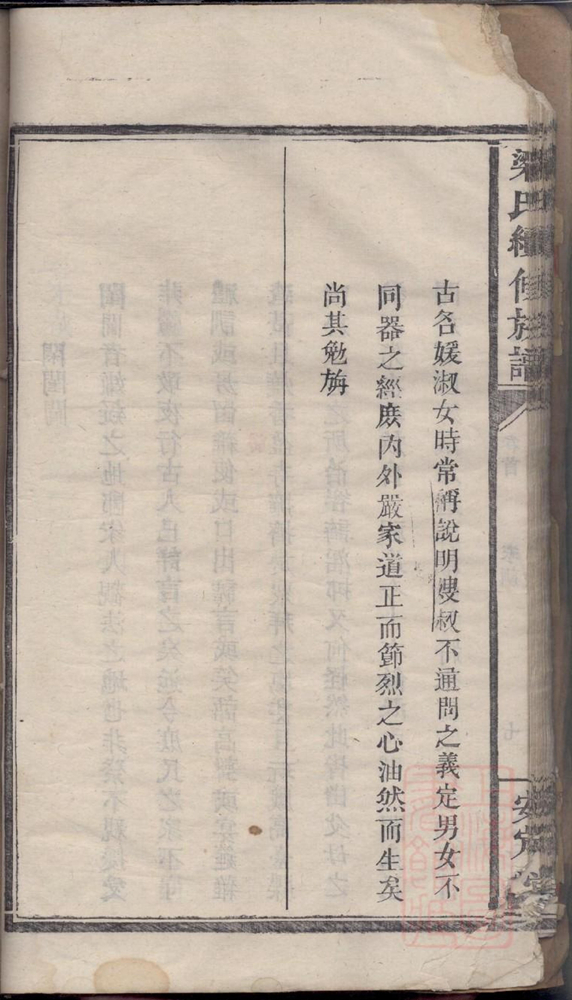 梁氏續修族譜
古名媛淑女時常稱說明嫂叔不通問之義定男女不
同器之經庶內外嚴家道正而節烈之心油然而生矣
尚其勉旃
卷首
七
安定堂